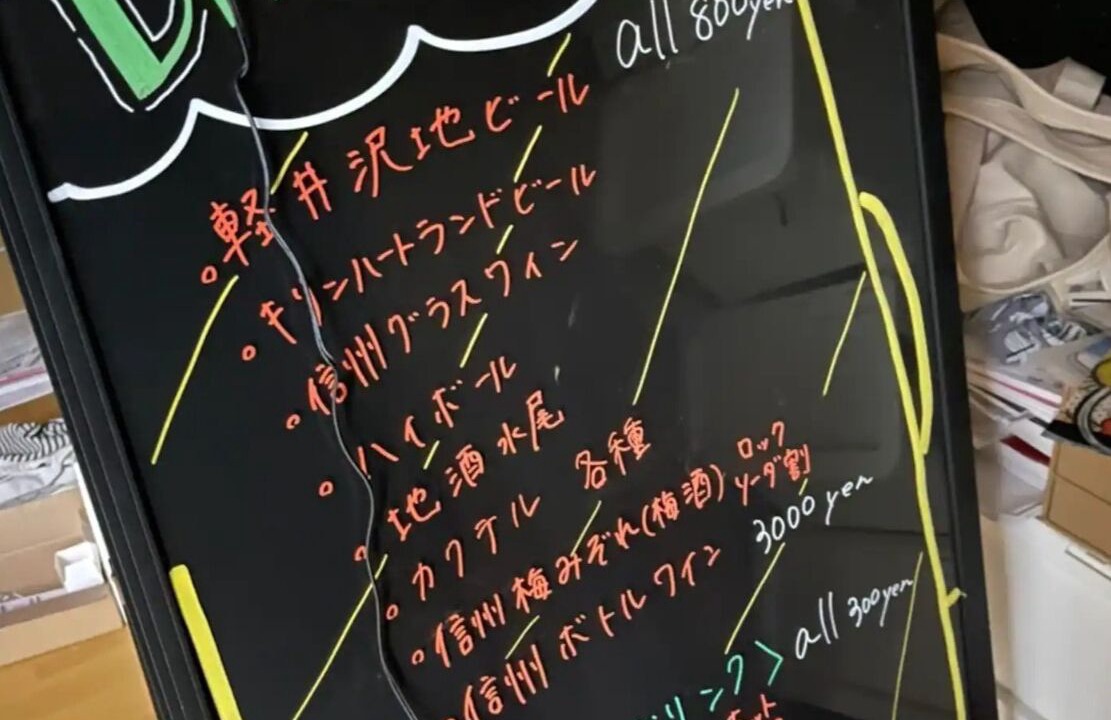 all 800yen
。軽井沢地ビール
。キリンハートランドビール
。信州グラスワイン
。ハイボール
。地酒 水尾
。カクテル 各種
。信州梅みぞれ(梅酒) ロック ソーダ割
信州ボトルワイン 3000yen
リンク〉 all 300yen